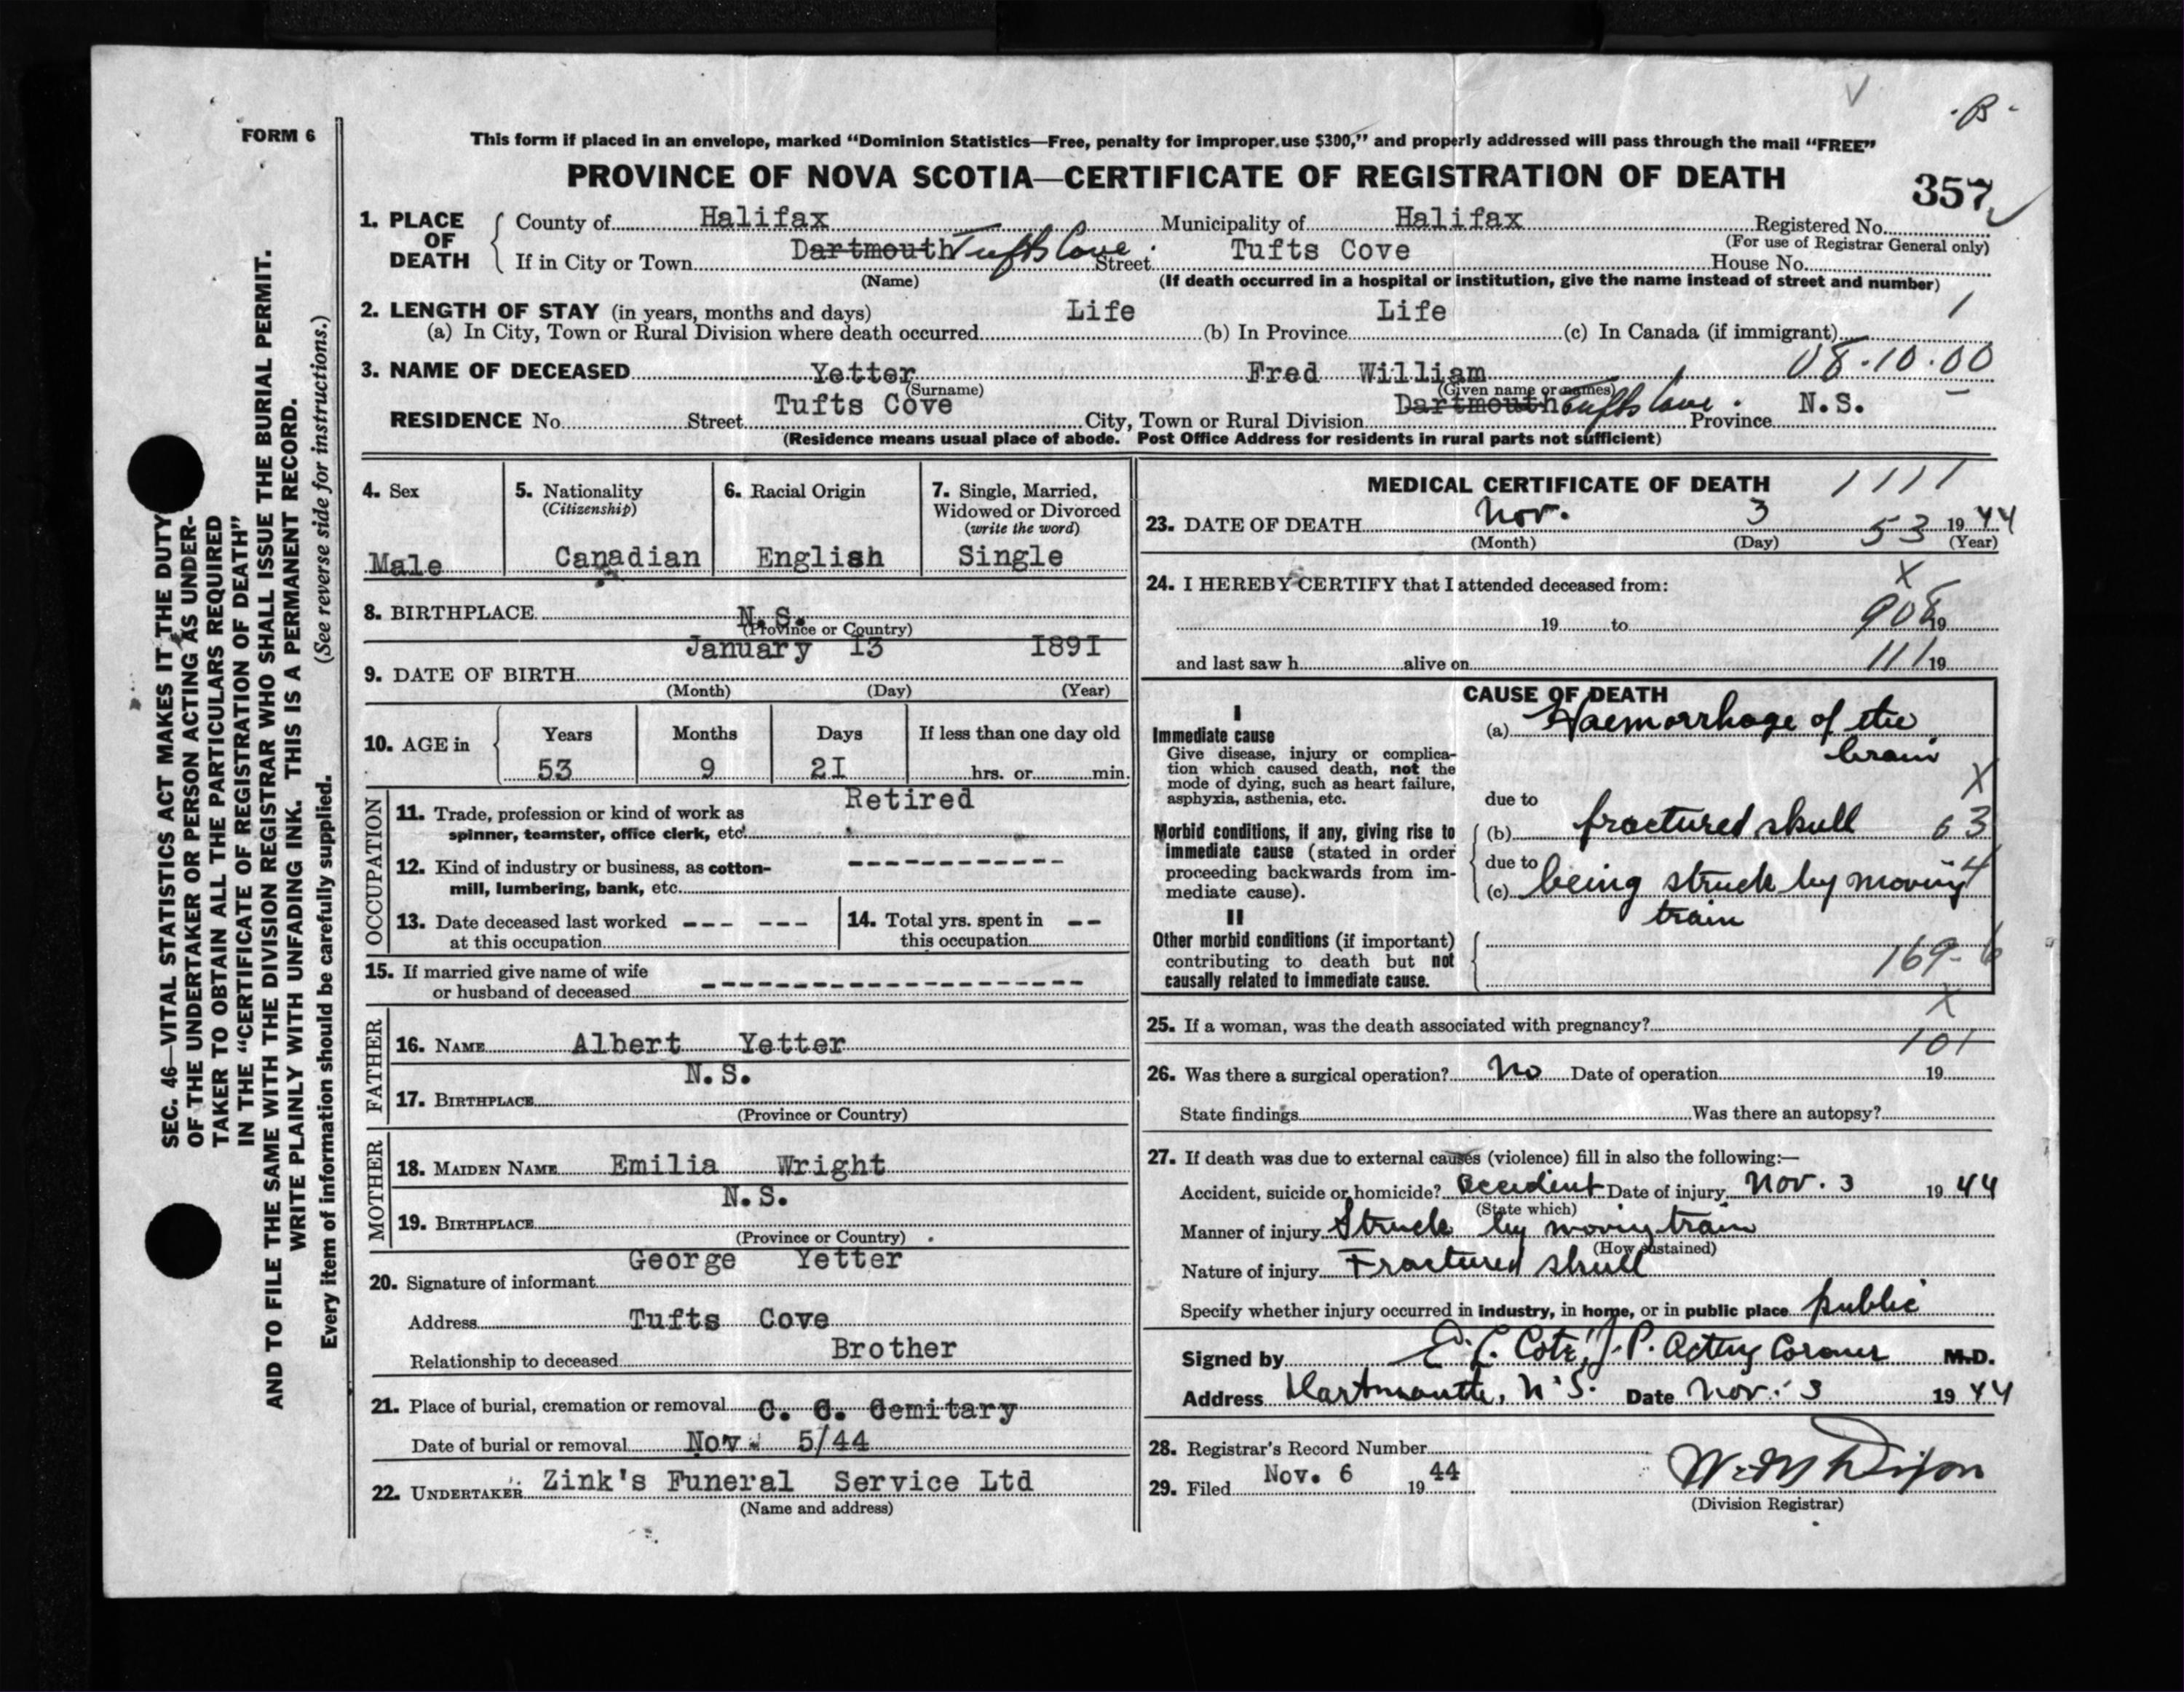 FORM 6
-B-
This form if placed in an envelope, marked “Dominion Statistics—Free, penalty for improper use $300,” and properly addressed will pass through the mail “FREE”
PROVINCE OF NOVA SCOTIA—CERTIFICATE OF REGISTRATION OF DEATH
357
1. PLACE OF DEATH
County of Halifax Municipality of Halifax Registered No.
(For use of Registrar General only)
If in City or Town Dartmouth Tufts Cove. Street Tufts Cove House No.
(Name) (If death occurred in a hospital or institution, give the name instead of street and number)
2. LENGTH OF STAY (in years, months and days) Life Life 1
(a) In City, Town or Rural Division where death occurred (b) In Province (c) In Canada (if immigrant)
08.10.00
3. NAME OF DECEASED Yetter Fred William
(Surname) (Given name or names)
RESIDENCE No. Street Tufts Cove City, Town or Rural Division Dartmouth Tufts Cove. Province N.S.
(Residence means usual place of abode. Post Office Address for residents in rural parts not sufficient)
4. Sex
Male
5. Nationality
(Citizenship)
Canadian
6. Racial Origin
English
7. Single, Married,
Widowed or Divorced
(write the word)
Single
8. BIRTHPLACE N.S.
(Province or Country)
January 13 1891
9. DATE OF BIRTH
(Month) (Day) (Year)
10. AGE in
Years Months Days If less than one day old
53 9 21 hrs. or min.
OCCUPATION
11. Trade, profession or kind of work as Retired
spinner, teamster, office clerk, etc.
12. Kind of industry or business, as cotton-
mill, lumbering, bank, etc.
13. Date deceased last worked --- ---
at this occupation
14. Total yrs. spent in --
this occupation
15. If married give name of wife
or husband of deceased
FATHER
16. NAME Albert Yetter
N.S.
17. BIRTHPLACE
(Province or Country)
MOTHER
18. MAIDEN NAME Emilia Wright
N.S.
19. BIRTHPLACE
(Province or Country)
George Yetter
20. Signature of informant
Address Tufts Cove
Relationship to deceased Brother
21. Place of burial, cremation or removal C. C. Cemitary
Date of burial or removal Nov. 5/44
22. UNDERTAKER Zink's Funeral Service Ltd
(Name and address)
MEDICAL CERTIFICATE OF DEATH 1111
23. DATE OF DEATH Nov. 3 53 1944
(Month) (Day) (Year)
24. I HEREBY CERTIFY that I attended deceased from: X
19 to 908 19
and last saw h alive on 111 19
CAUSE OF DEATH
I
Immediate cause
Give disease, injury or complica-
tion which caused death, not the
mode of dying, such as heart failure,
asphyxia, asthenia, etc.
(a) Haemorrhage of the
brain
X
due to
Morbid conditions, if any, giving rise to
immediate cause (stated in order
proceeding backwards from im-
mediate cause).
(b) fractured skull 63
due to 4
(c) being struck by moving
train
II
Other morbid conditions (if important)
contributing to death but not
causally related to immediate cause.
169-6
X
25. If a woman, was the death associated with pregnancy?
101
26. Was there a surgical operation? No Date of operation 19
State findings Was there an autopsy?
27. If death was due to external causes (violence) fill in also the following:—
Accident, suicide or homicide? Accident Date of injury Nov. 3 1944
(State which)
Manner of injury Struck by moving train
(How sustained)
Nature of injury Fractured skull
Specify whether injury occurred in industry, in home, or in public place public
Signed by E. L. Cote, J.P. Acting Coroner M.D.
Address Dartmouth, N.S. Date Nov. 3 1944
28. Registrar's Record Number
29. Filed Nov. 6 1944
(Division Registrar)
SEC. 46—VITAL STATISTICS ACT MAKES IT THE DUTY
OF THE UNDERTAKER OR PERSON ACTING AS UNDER-
TAKER TO OBTAIN ALL THE PARTICULARS REQUIRED
IN THE “CERTIFICATE OF REGISTRATION OF DEATH”
AND TO FILE THE SAME WITH THE DIVISION REGISTRAR WHO SHALL ISSUE THE BURIAL PERMIT.
WRITE PLAINLY WITH UNFADING INK. THIS IS A PERMANENT RECORD.
Every item of information should be carefully supplied. (See reverse side for instructions.)